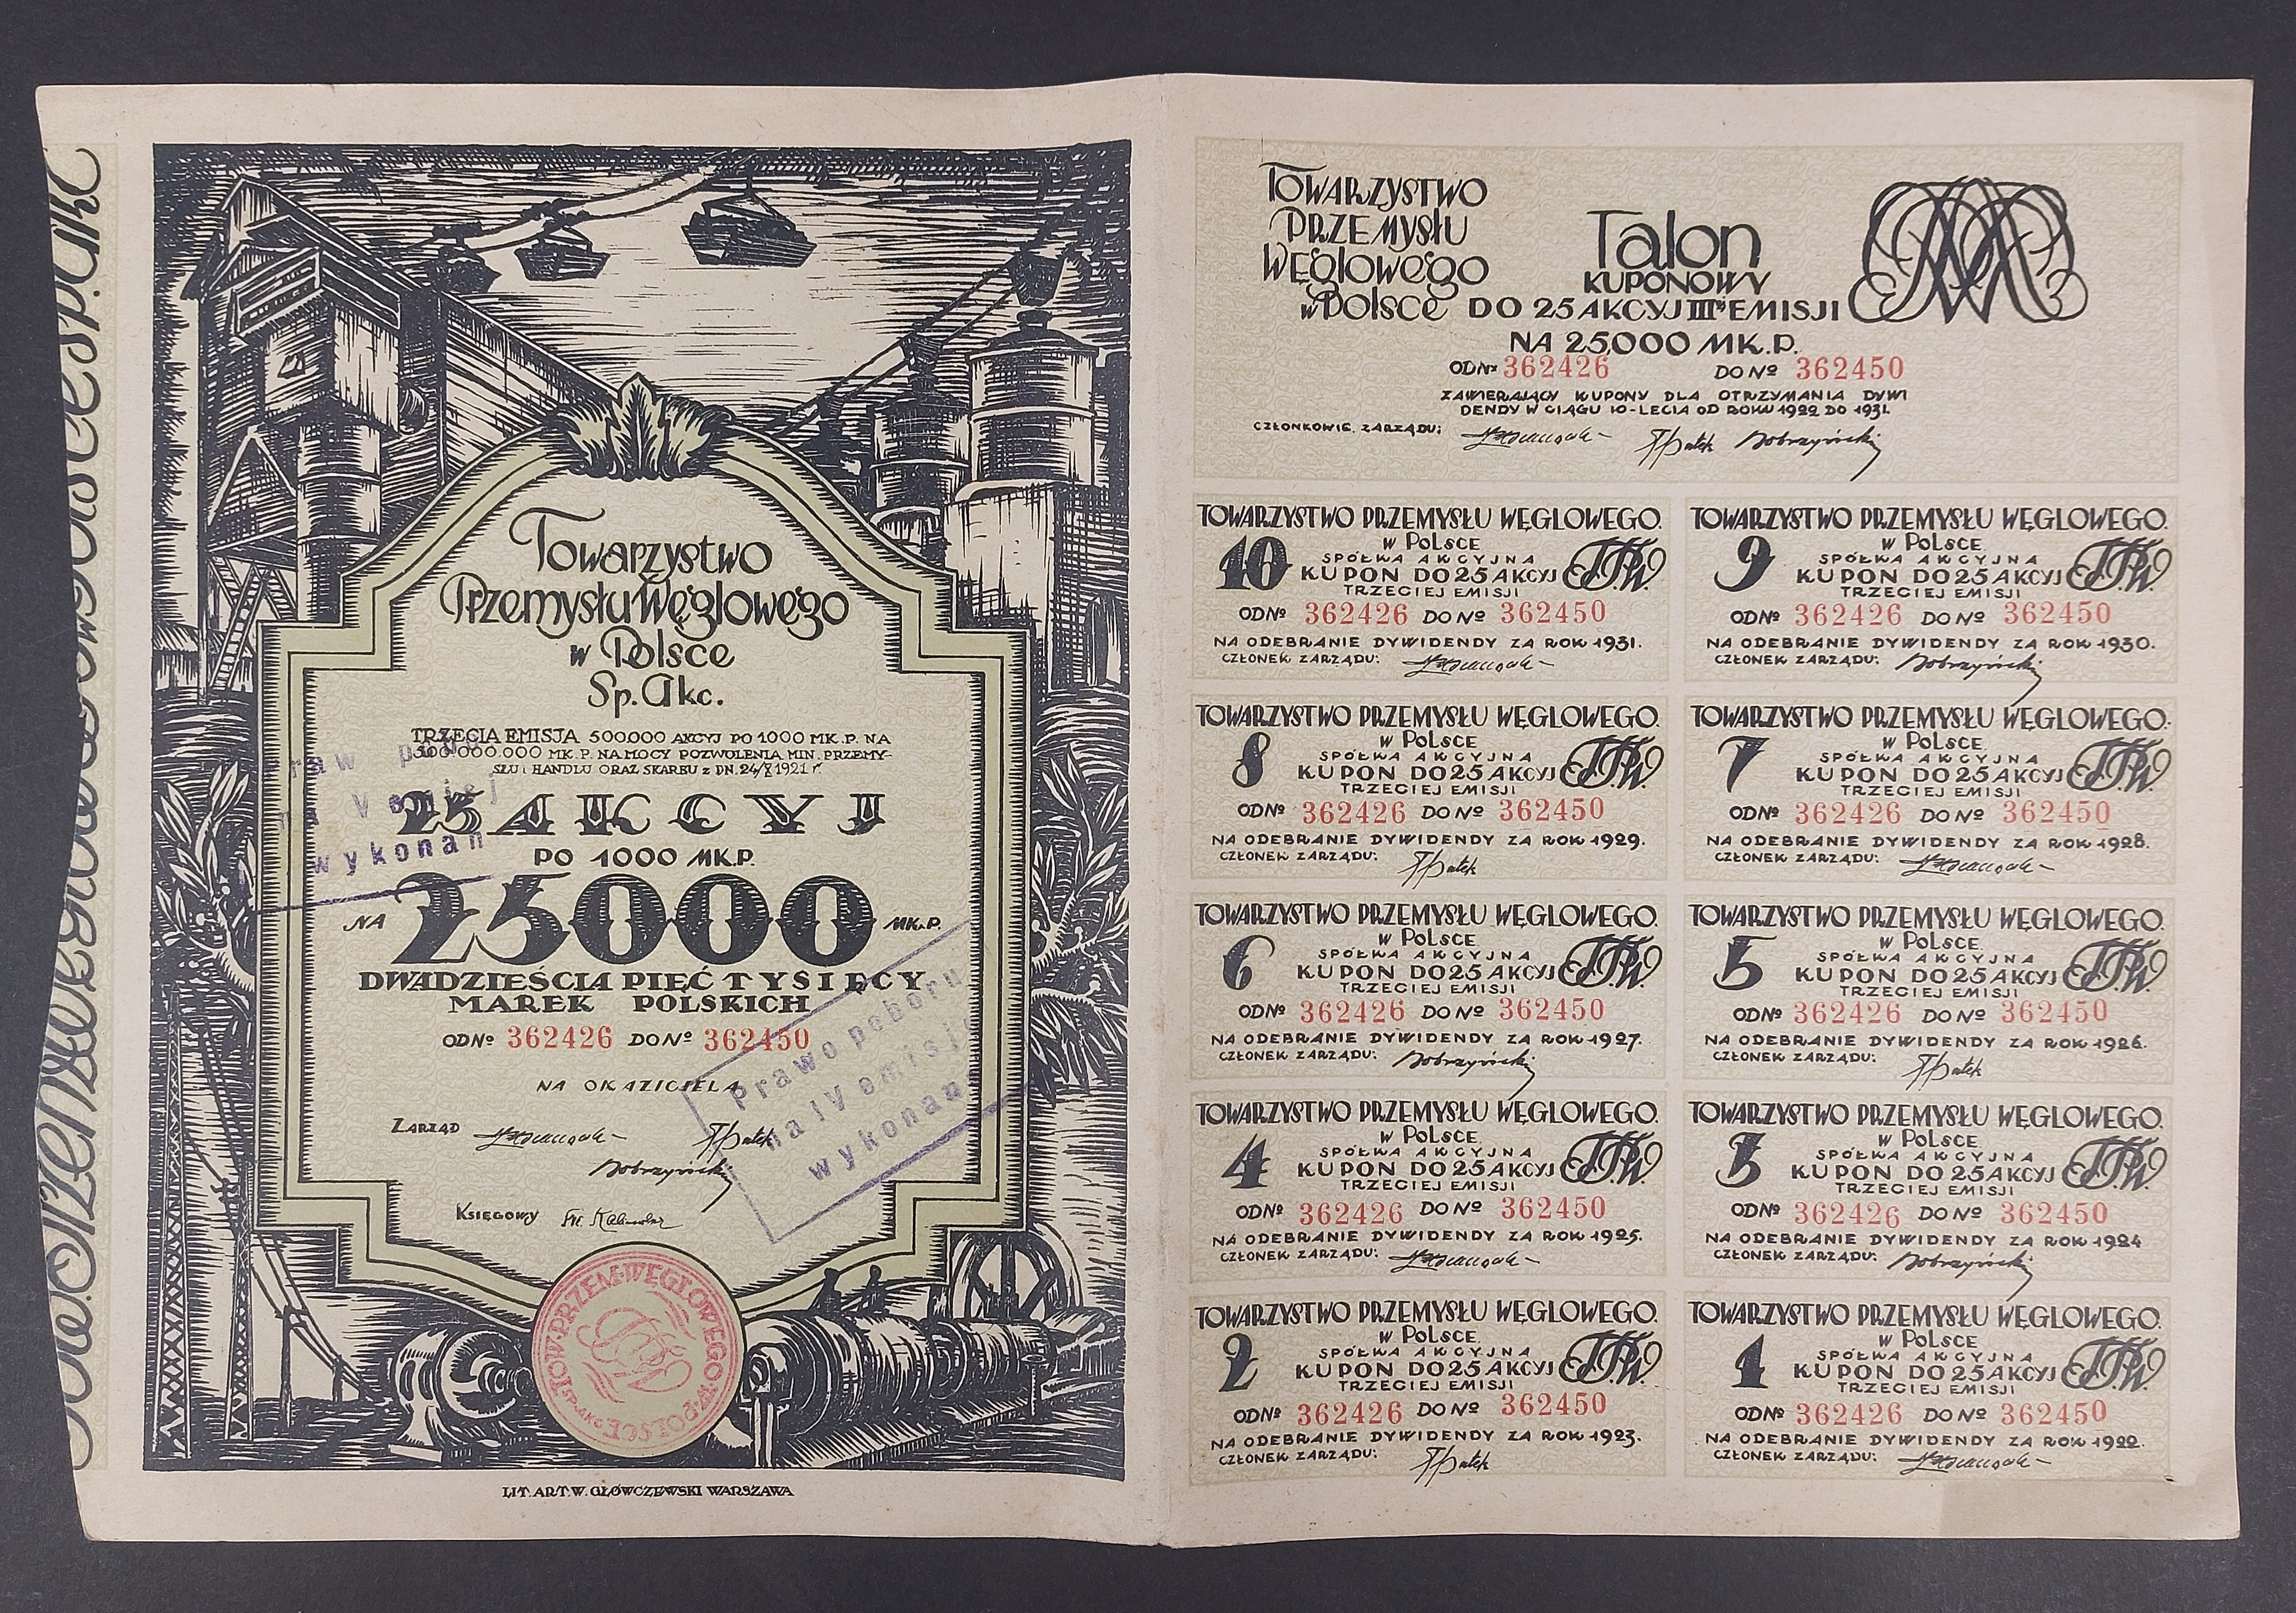 Towarzystwo
Przemysłu Węglowego
w Polsce
Sp. Akc.
TRZECIA EMISJA 500.000 AKCYJ PO 1000 MK. P. NA
500.000.000 MK. P. NA MOCY POZWOLENIA MIN. PRZEMY-
SŁU i HANDLU ORAZ SKARBU z DN. 24/X 1921 r.
25 AKCYJ
PO 1000 MK.P.
NA 25000 MK.P.
DWADZIEŚCIA PIĘĆ TYSIĘCY
MAREK POLSKICH
OD Nº 362426 DO Nº 362450
NA OKAZICIELA
ZARZĄD
Dobrzyński
KSIĘGOWY
na V emisję
wykonan
Prawo poboru
na IV emisję
wykonan
TOW. PRZEM. WĘGLOWEGO W POLSCE SP. AKC.
LIT. ART. W. GŁÓWCZEWSKI WARSZAWA
TOWARZYSTWO
PRZEMYSŁU
WĘGLOWEGO
w POLSCE
Talon
KUPONOWY
DO 25 AKCYJ IIIej EMISJI
NA 25.000 MK.P.
OD Nº 362426 DO Nº 362450
ZAWIERAJĄCY KUPONY DLA OTRZYMANIA DYWI
DENDY W CIĄGU 10-LECIA OD ROKU 1922 DO 1931.
CZŁONKOWIE ZARZĄDU: Dobrzyński
TOWARZYSTWO PRZEMYSŁU WĘGLOWEGO.
w POLSCE
SPÓŁKA AKCYJNA
10 KUPON DO 25 AKCYJ TPW
TRZECIEJ EMISJI
OD Nº 362426 DO Nº 362450
NA ODEBRANIE DYWIDENDY ZA ROK 1931.
CZŁONEK ZARZĄDU:
TOWARZYSTWO PRZEMYSŁU WĘGLOWEGO.
w POLSCE
SPÓŁKA AKCYJNA
9 KUPON DO 25 AKCYJ TPW
TRZECIEJ EMISJI
OD Nº 362426 DO Nº 362450
NA ODEBRANIE DYWIDENDY ZA ROK 1930.
CZŁONEK ZARZĄDU: Dobrzyński
TOWARZYSTWO PRZEMYSŁU WĘGLOWEGO.
w POLSCE
SPÓŁKA AKCYJNA
8 KUPON DO 25 AKCYJ TPW
TRZECIEJ EMISJI
OD Nº 362426 DO Nº 362450
NA ODEBRANIE DYWIDENDY ZA ROK 1929.
CZŁONEK ZARZĄDU:
TOWARZYSTWO PRZEMYSŁU WĘGLOWEGO.
w POLSCE
SPÓŁKA AKCYJNA
7 KUPON DO 25 AKCYJ TPW
TRZECIEJ EMISJI
OD Nº 362426 DO Nº 362450
NA ODEBRANIE DYWIDENDY ZA ROK 1928.
CZŁONEK ZARZĄDU:
TOWARZYSTWO PRZEMYSŁU WĘGLOWEGO.
w POLSCE
SPÓŁKA AKCYJNA
6 KUPON DO 25 AKCYJ TPW
TRZECIEJ EMISJI
OD Nº 362426 DO Nº 362450
NA ODEBRANIE DYWIDENDY ZA ROK 1927.
CZŁONEK ZARZĄDU: Dobrzyński
TOWARZYSTWO PRZEMYSŁU WĘGLOWEGO.
w POLSCE
SPÓŁKA AKCYJNA
5 KUPON DO 25 AKCYJ TPW
TRZECIEJ EMISJI
OD Nº 362426 DO Nº 362450
NA ODEBRANIE DYWIDENDY ZA ROK 1926.
CZŁONEK ZARZĄDU:
TOWARZYSTWO PRZEMYSŁU WĘGLOWEGO.
w POLSCE
SPÓŁKA AKCYJNA
4 KUPON DO 25 AKCYJ TPW
TRZECIEJ EMISJI
OD Nº 362426 DO Nº 362450
NA ODEBRANIE DYWIDENDY ZA ROK 1925.
CZŁONEK ZARZĄDU:
TOWARZYSTWO PRZEMYSŁU WĘGLOWEGO.
w POLSCE
SPÓŁKA AKCYJNA
3 KUPON DO 25 AKCYJ TPW
TRZECIEJ EMISJI
OD Nº 362426 DO Nº 362450
NA ODEBRANIE DYWIDENDY ZA ROK 1924
CZŁONEK ZARZĄDU: Dobrzyński
TOWARZYSTWO PRZEMYSŁU WĘGLOWEGO.
w POLSCE
SPÓŁKA AKCYJNA
2 KUPON DO 25 AKCYJ TPW
TRZECIEJ EMISJI
OD Nº 362426 DO Nº 362450
NA ODEBRANIE DYWIDENDY ZA ROK 1923.
CZŁONEK ZARZĄDU:
TOWARZYSTWO PRZEMYSŁU WĘGLOWEGO.
w POLSCE
SPÓŁKA AKCYJNA
1 KUPON DO 25 AKCYJ TPW
TRZECIEJ EMISJI
OD Nº 362426 DO Nº 362450
NA ODEBRANIE DYWIDENDY ZA ROK 1922.
CZŁONEK ZARZĄDU: